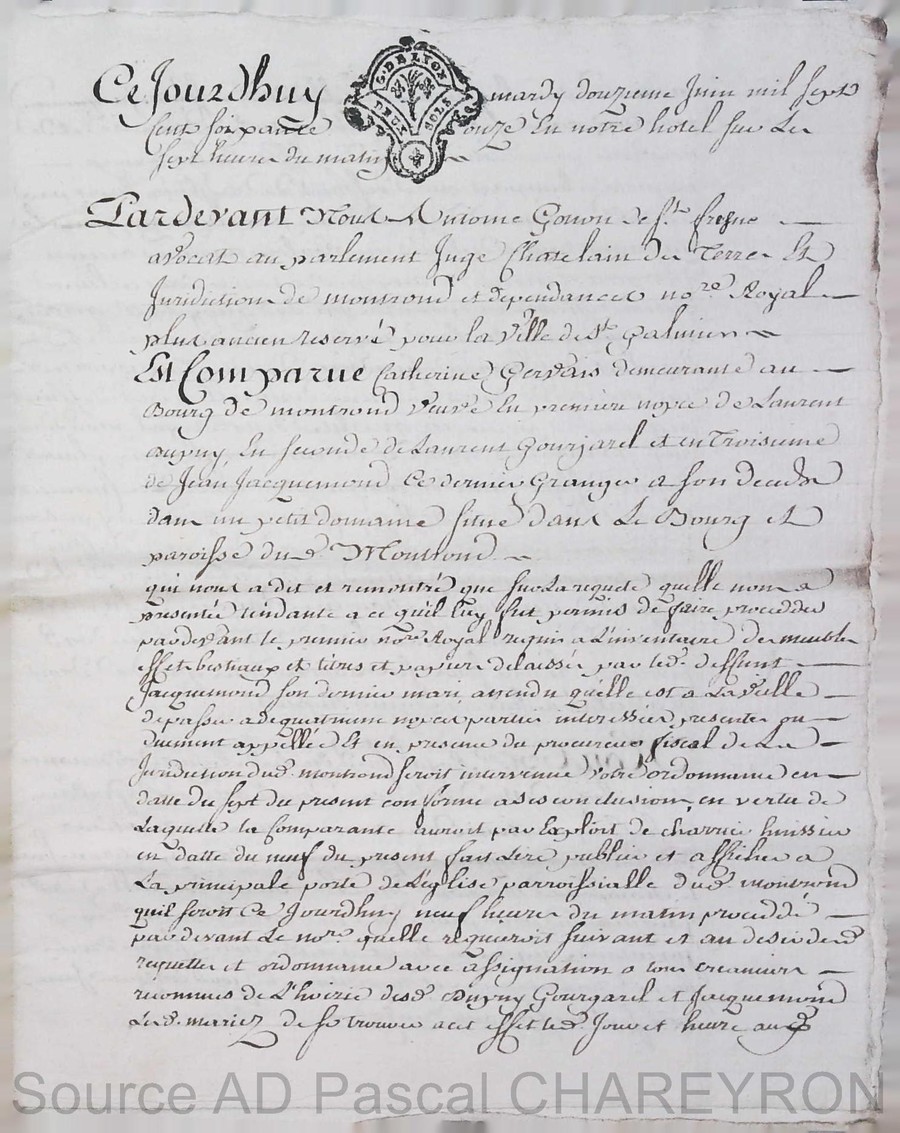 Ce Jourdhuy mardy douzieme juin mil sept
G. DE LYON
DEUX SOLS
cent soixante onze En notre hotel sur Les
sept heures du matin
Pardevant Nous Antoine Gonon de St. fresne
avocat au parlement Juge Chatelain des Terres Et
Juridiction de montrond et dependances no.re Royal
plus ancien reservé pour la Ville de St. Galmier
Est Comparue Catherine Gervais demeurante au
Bourg de montrond veuve En premiere nopce de Laurent
dupuy En seconde de Laurent Gourjarel et en Troisieme
de Jean Jacquemond Ce dernier Granger a son decedz
dans un petit domaine situé dans Le Bourg et
paroisse dud. Montrond
qui nous a dit et remontré que sur La requete quelle nous a
presentée tendante a ce qu'il luy fut permis de faire proceder
pardevant le premier no.re Royal requis a L'inventaire des meubles
effets bestiaux et titres et papiers delaissés par led. deffunt
Jacquemond son dernier mari attendu qu'elle est a La veille
de passer a de quatrieme nopces parties interessées presentes ou
duement appellée Et en presence du procureur fiscal de La
Juridiction dud. montrond seroit intervenue votre ordonnance en
datte du sept du present conforme a ses conclusions, en vertu de
Laquelle la Comparante auroit par Exploit de charrier huissier
en datte du neuf du present fait Lire publier et afficher a
La principale porte de L'Eglise parroissialle dud. montrond
quil seroit Ce Jourdhuy neuf heures du matin proceddé
pardevant Le no.re quelle requeroit suivant et au desir desd.
requettes et ordonnance avec assignation a tous creanciers
reconnus de L'hoirie desd. dupuy Gourgarel et Jacquemond
Lesd. mariez de se trouver a cet effet led. Jour et heure aud.
Source AD Pascal CHAREYRON